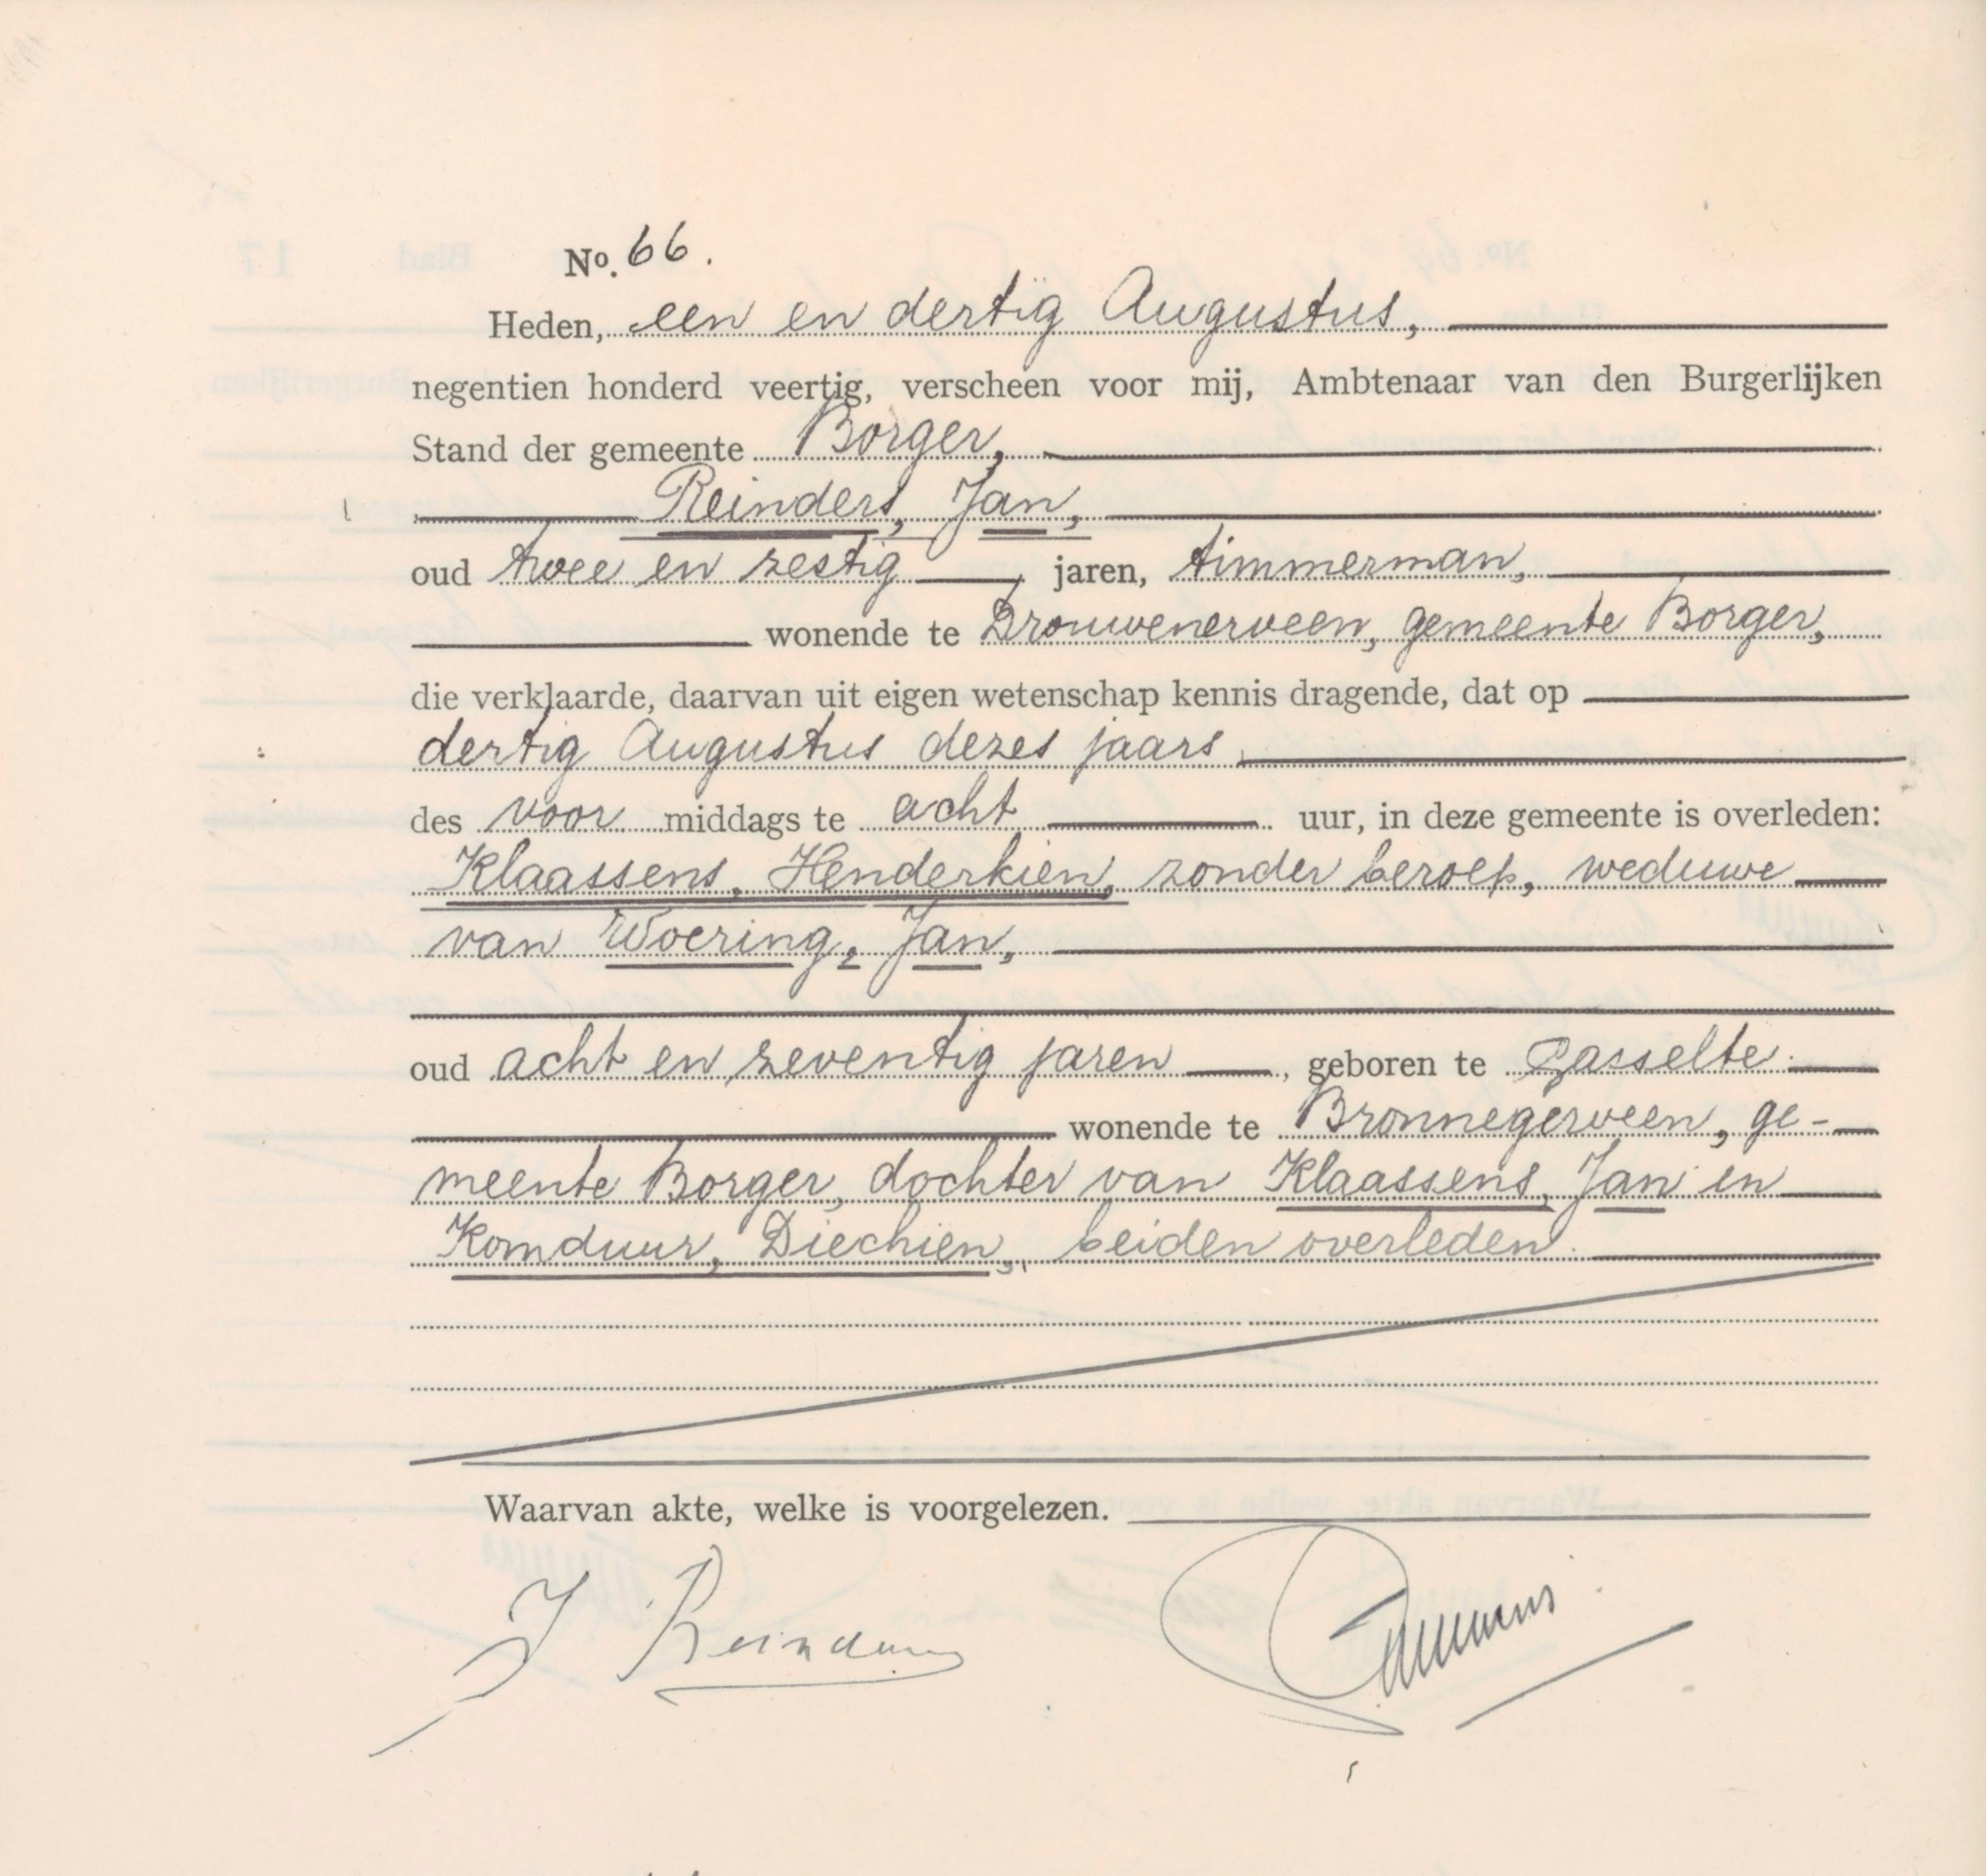 No. 66.
Heden, een en dertig Augustus,
negentien honderd veertig, verscheen voor mij, Ambtenaar van den Burgerlijken
Stand der gemeente Borger,
Reinders, Jan,
oud twee en zestig, jaren, timmerman,
wonende te Drouwenerveen, gemeente Borger,
die verklaarde, daarvan uit eigen wetenschap kennis dragende, dat op
dertig Augustus dezes jaars
des voor middags te acht uur, in deze gemeente is overleden:
Klaassens, Henderkien, zonder beroep, weduwe
van Woering, Jan,
oud acht en zeventig jaren, geboren te Gasselte
wonende te Bronnegerveen, ge-
meente Borger, dochter van Klaassens, Jan en
Komduur, Diechien, beiden overleden.
Waarvan akte, welke is voorgelezen.
J Reinders